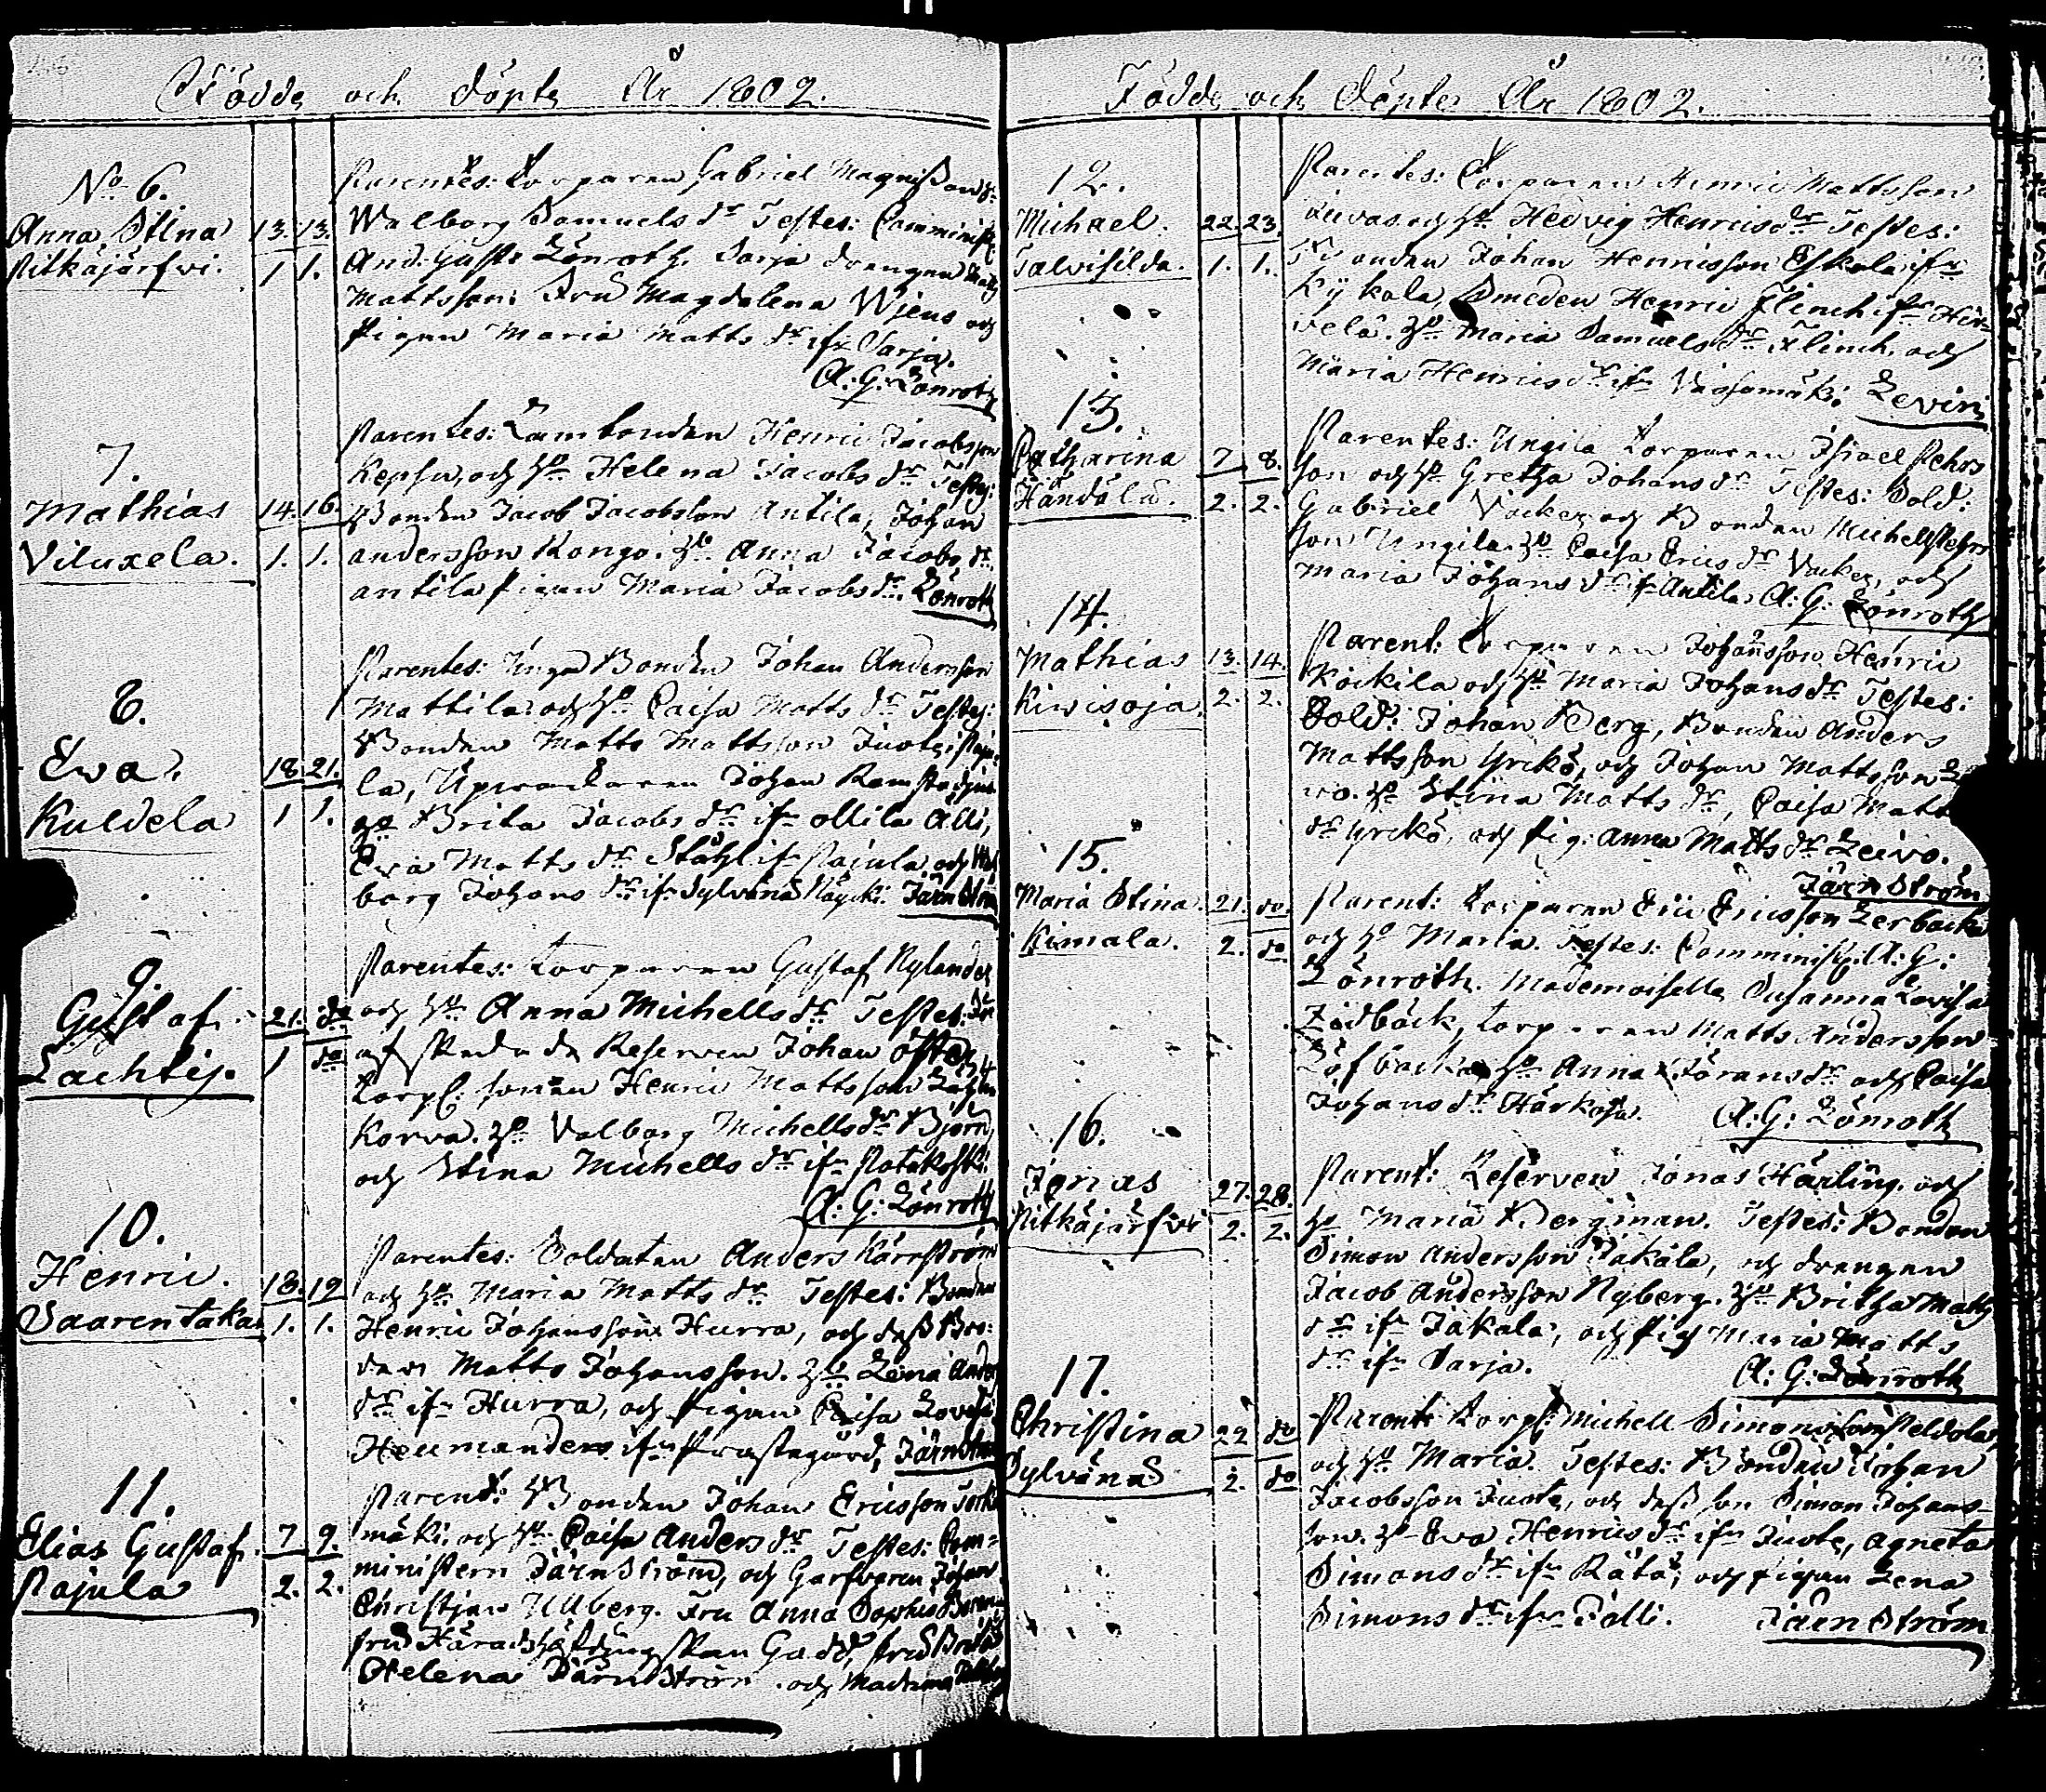 Födde och döpte År 1802.
No 6.
Anna Stina 13. 13.
Pitkäjärfwi. 1 1.
Parentes: Torparen Gabriel Magnißon
Walborg Samuels dr Testes: Comminist:
And: Gust: Lönroth. Sarja drengen Matts
Mattsson. Fru Magdalena Wjens och
pigan Maria Matts dr ifr Sarja.
A: G: Lönroth
7.
Mathias 14. 16.
Viluxela. 1. 1.
Parentes: Landbonden Henric Jacobsson
Kepsu, och H:o Helena Jacobs dr Testes:
Bonden Jacob Jacobsson Antila, Johan
andersson Kongo. H:o Anna Jacobs dr
antila pigan Maria Jacobs dr. Lönroth
8.
Ewa. 18 21.
Kuldela 1 1.
Parentes: Unga Bonden Johan Andersson
Mattila och H:o Caisa Matts dr Testes:
Bonden Matts Mattsson Juote i Paju-
la, Upwactaren Johan
H:o Brita Jacobs dr ifr ollila Alli,
Ewa Matts dr Ståhl ifr Pajula och Wal
borg Johans dr ifr Sylvänä Näycki. Järnström
9.
Gustaf. 21. do
Lachtij. 1 do
Parentes: Torparen Gustaf Nylander
och H:o Anna Michells dr Testes:
afskedade Reserven Johan Öster,
Torp: sonen Henric Mattsson
Korva. H:o Valborg Michells dr Björn,
och Stina Michells dr ifr Patakoski.
A: G: Lönroth
10.
Henric. 18. 19
Saarentaka 1. 1.
Parentes: Soldaten Anders Kärnström
och H:o Maria Matts dr Testes: Bonden
Henric Johansson Hurra, och deß Bro-
der Matts Johansson. H:o Lena Anders
dr ifr Hurra, och pigan Caisa Lovisa
Heumander ifr Prästegård, Järnström
11.
Elias Gustaf. 7 9.
Pajula 2. 2.
Parent: Bonden Johan Ericsson Tork
mäki och H:o Caisa Anders dr Testes: Com-
ministern Järnström, och Garfvaren Johan
Christjan Ullberg. Fru Anna Sophia
fru Häradshöfdingskan Gadd, fru
Helena Järnström och Madame
Födde och Döpte År 1802.
12.
Michael. 22. 23.
Talvisilda. 1. 1.
Parentes: Torparen Henric Mattsson
Luvas och H:o Hedvig Henrics dr Testes:
Bonden Johan Henricsson Eskola ifr
Kykola, Smeden Henric Flinck ifr Hir-
velä. H:o Maria Samuels dr Flinck och
Maria Henrics dr ifr Vässomäki Levin
13.
Catharina 7 8.
Händälä. 2. 2.
Parentes: Ungila Torparen Israel Pehrs
son och H:o Gretha Johans dr Testes: Sold:
Gabriel Vacker och Bonden Michell Pehrs
son Ungila. H:o Caisa Erics dr Vacker, och
Maria Johans dr ifr Antila A: G: Lönroth
14.
Mathias 13. 14.
Kiwisoja. 2. 2.
Parent: Torparen Johansson Henric
Koickila och H:o Maria Johans dr Testes:
Sold: Johan Berg, Bonden Anders
Mattsson Yrckö, och Johan Mattsson
vo. H:o Stina Matts dr, Caisa Matt
dr Yrckö, och pig: Anna Matts dr Leivo.
Järnström
15.
Maria Stina. 21. do
Kimala. 2. do
Parent: Torparen Eric Ericsson Lerbacka
och H:o Maria. Testes: Comminist: A: G:
Lönroth. Mademoiselle Susanna Lovisa
Zidbäck, Torparen Matts Andersson
Löfbacka H:o Anna Jörans dr och Caisa
Johans dr Härkoja. A: G: Lönroth
16.
Jonas 27. 28.
Pitkäjärfvi 2. 2.
Parent: Reserven Jonas Härling och
H:o Maria Bergman. Testes: Bonden
Simon Andersson Jakala, och drengen
Jacob Andersson Nyberg. H:o Britha Matts
dr ifr Jakala, och pig Maria Matts
dr ifr Sarja. A: G: Lönroth
17.
Christina 22 do
Sylvänä 2. do
Parent: Torp: Michell Simonsson Peldola,
och H:o Maria. Testes: Bonden Johan
Jacobsson Juote, och deß son Simon Johans-
son. H:o Eva Henrics dr ifr Juote, Agneta
Simons dr ifr Rätä, och pigan Lena
Simons dr ifr Jalli. Järnström